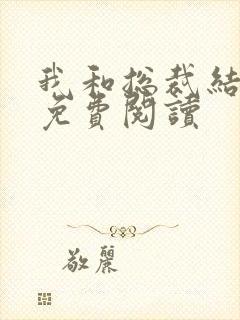 我和总裁結
免費閱讀
敬麗